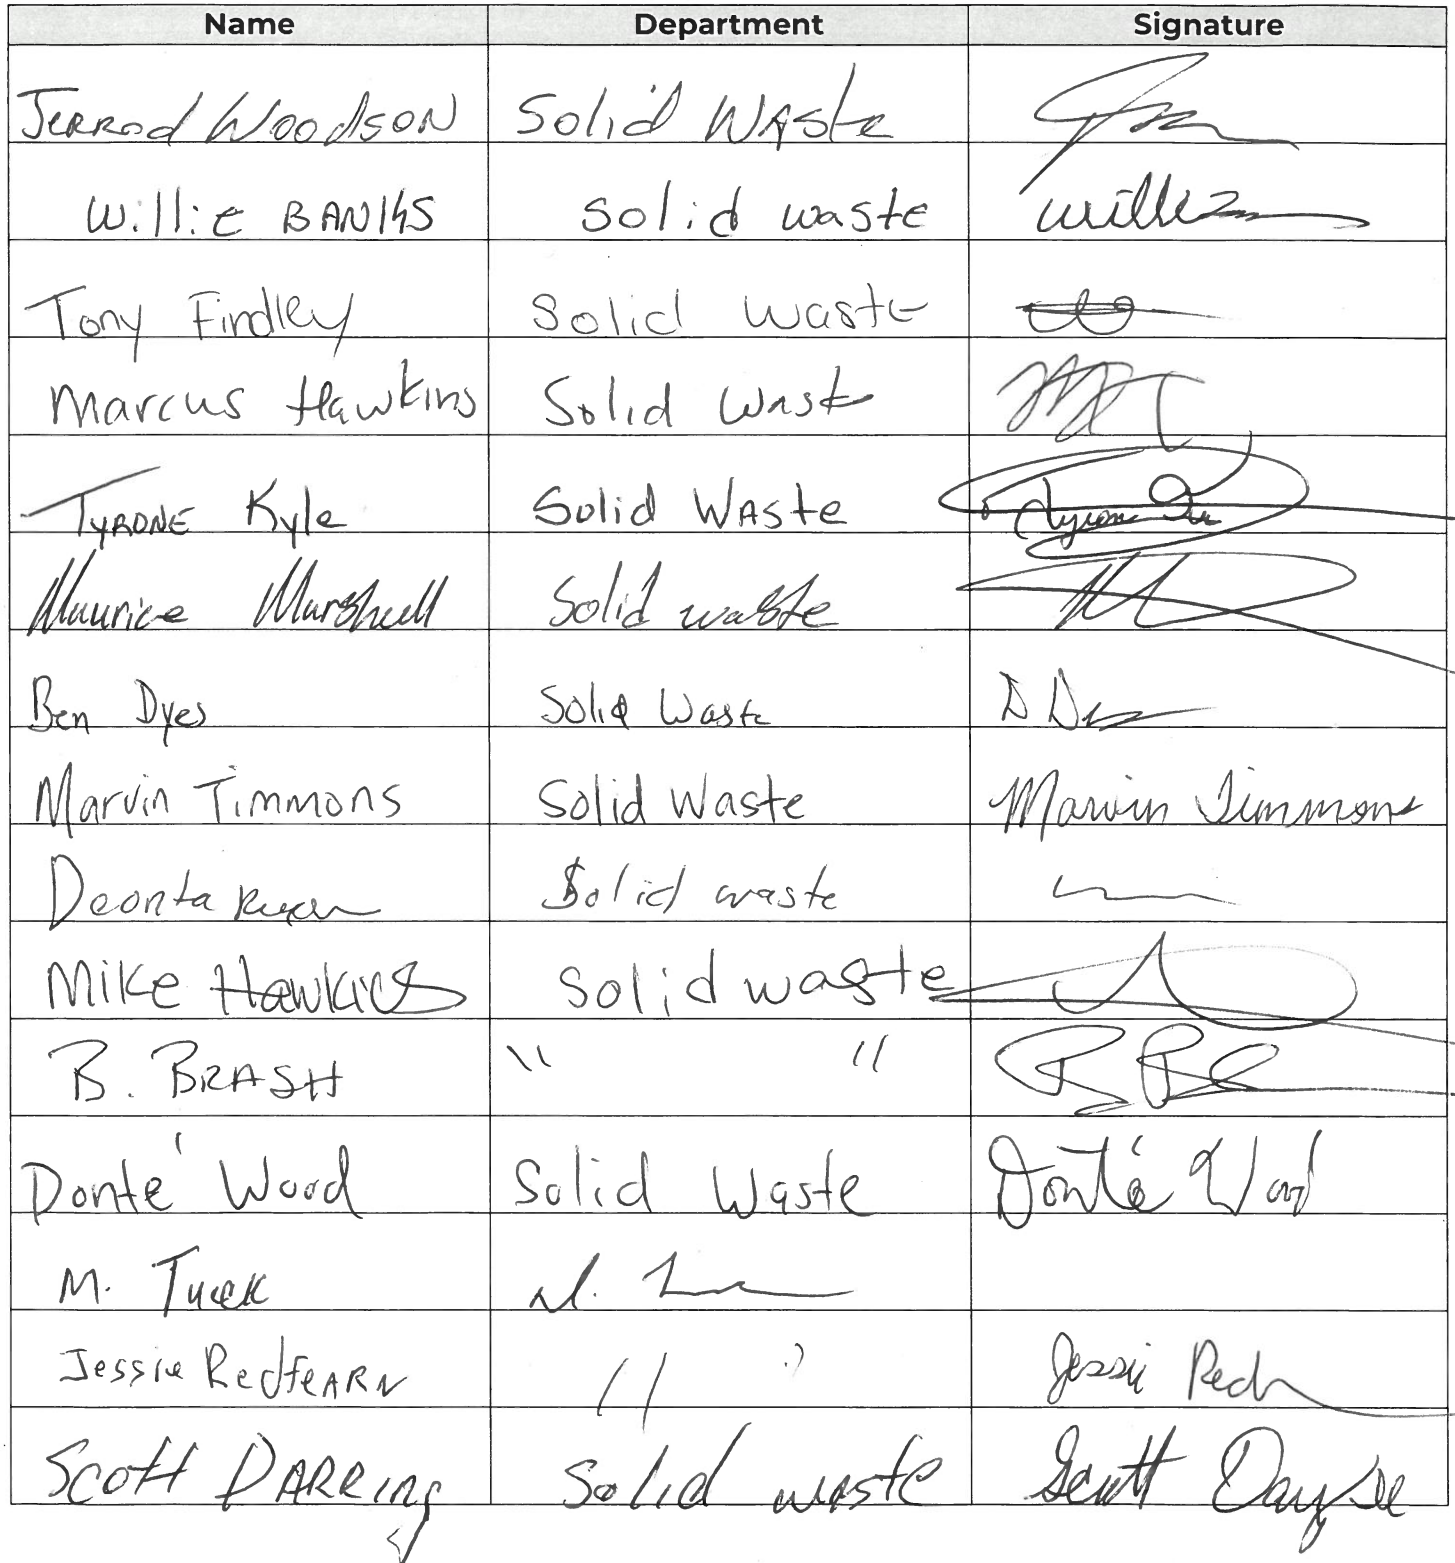 Name Department Signature
Jerrod Woodson Solid Waste
Willie BANKS Solid waste
Tony Findley Solid Waste
Marcus Hawkins Solid Waste
TYRONE Kyle Solid Waste
Maurice Marshall Solid waste
Ben Dyes Solid Waste
Marvin Timmons Solid Waste Marvin Timmons
Deonta Solid waste
Mike Hawkins Solid waste
B. BRASH " "
Donte' Wood Solid Waste Donté Wood
M.
Jessie Redfearn " " Jessie
Scott DARRing Solid waste Scott